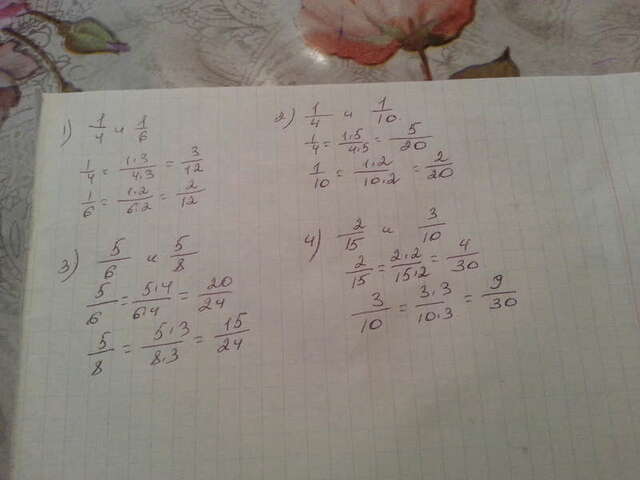 1) 1/4 и 1/6
1/4 = 1·3/4·3 = 3/12
1/6 = 1·2/6·2 = 2/12
2) 1/4 и 1/10
1/4 = 1·5/4·5 = 5/20
1/10 = 1·2/10·2 = 2/20
3) 5/6 и 5/8
5/6 = 5·4/6·4 = 20/24
5/8 = 5·3/8·3 = 15/24
4) 2/15 и 3/10
2/15 = 2·2/15·2 = 4/30
3/10 = 3·3/10·3 = 9/30